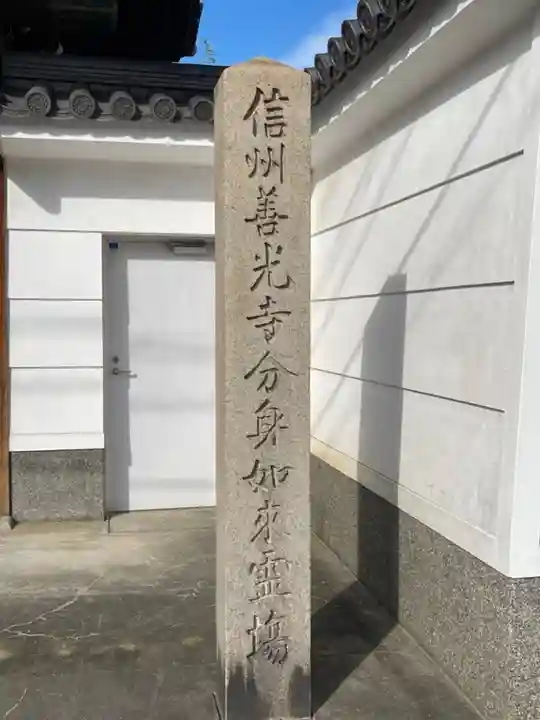 信州善光寺分身如來霊場